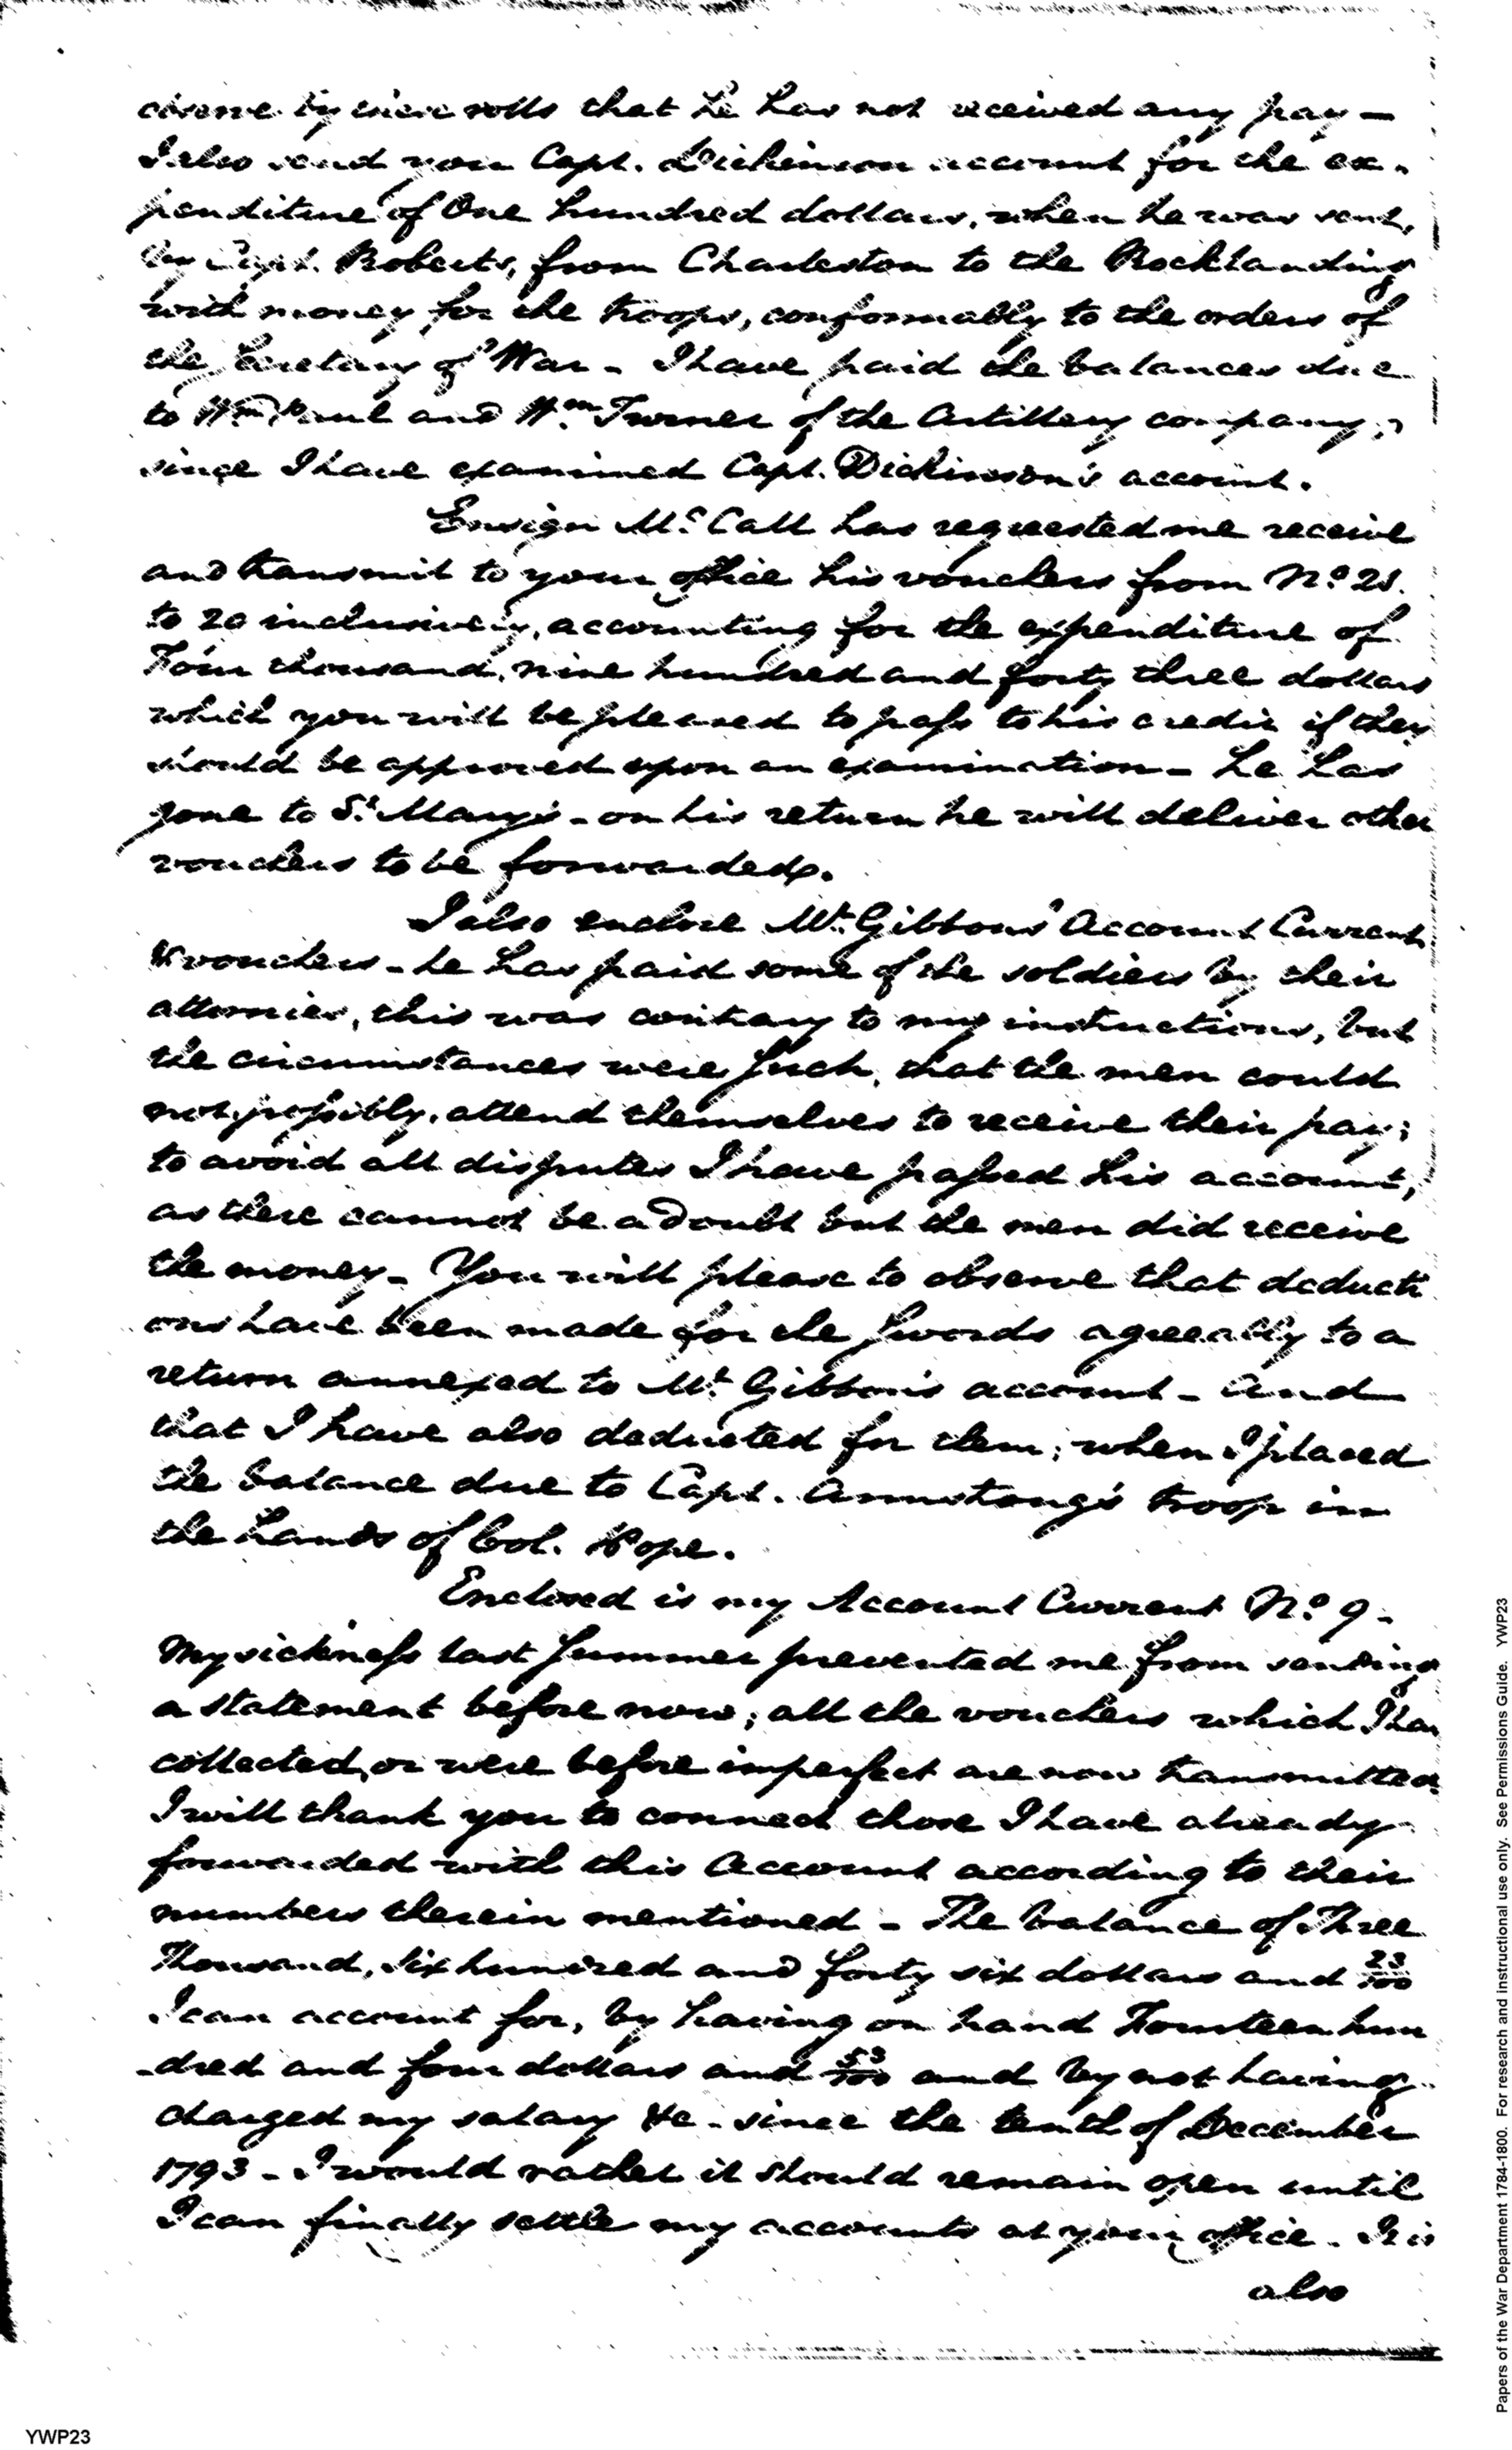 by these rolls that he has not received any pay —
I also send you Capt. Dickinson account for the ex-
penditure of One hundred dollars, when he was sent,
by Capt. Roberts, from Charleston to the Rocklanding
with money for the troops, conformably to the orders of
the Secretary of War – I have paid the balances due
to Wm. Paul and Wm. Turner of the Artillery company,
since I have examined Capt. Dickinson's account.
Ensign Mc.Call has requested me receive
and transmit to your office his vouchers from No. 21.
to 20 inclusively, accounting for the expenditure of
Four thousand, nine hundred and forty three dollars
which you will be pleased to pass to his credit if they
should be approved upon an examination – he has
gone to St. Mary's – on his return he will deliver other
vouchers to be forwarded.
I also enclose Mr. Gibbons' Account Current
& vouchers – he has paid some of the soldiers by their
attornies, this was contrary to my instructions, but
the circumstances were such, that the men could
not possibly, attend themselves to receive their pay;
to avoid all disputes I have passed his account,
as there cannot be a doubt but the men did receive
the money – You will please to observe that deducti
ons have been made for the swords agreeably to a
return annexed to Mr. Gibbons account – And
that I have also deducted for them; when I placed
the balance due to Capt. Armstrong's troop in
the hands of Col. Pope.
Enclosed is my Account Current No. 9 –
My sickness last summer prevented me from sending
a statement before now; all the vouchers which I ha
collected, or were before imperfect are now transmitted
I will thank you to connect those I have already
forwarded with this Account according to their
numbers therein mentioned – The balance of Three
Thousand, Six hundred and forty six dollars and 23/100
I can account for, by having on hand Fourteen hun
-dred and four dollars and 53/100 and by not having
charged my salary &c. since the tenth of December
1793 – I would rather it should remain open until
I can finally settle my accounts at your office – It is
also
YWP23
Papers of the War Department 1784-1800. For research and instructional use only. See Permissions Guide. YWP23